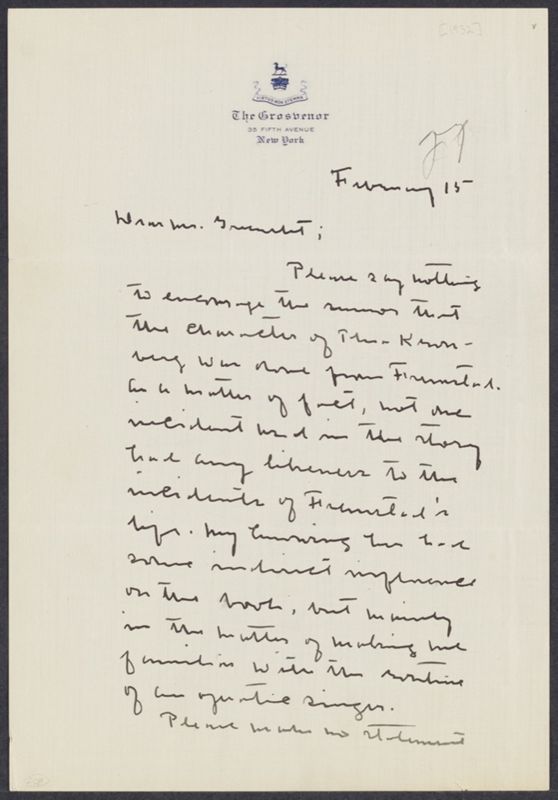 [1932]
VIRTUS NON STEMMA
The Grosvenor
35 FIFTH AVENUE
New York
February 15
Dear Mr. Greenslet;
Please say nothing
to encourage the rumor that
the character of Thea Kron-
berg was done from Fremstad.
As a matter of fact, not one
incident used in the story
had any likeness to the
incidents of Fremstad's
life. My knowing her had
some indirect influence
on the book, but mainly
in the matter of making me
familiar with the routine
of an operatic singer.
Please make no statement